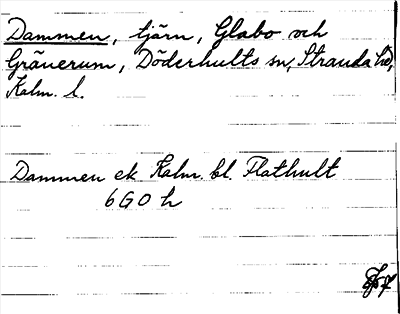 Dammen, tjärn, Glabo och
Gränerum, Döderhults sn, Stranda hd,
Kalm. l.
Dammen ek Kalm. bl. Flathult
6 G O h